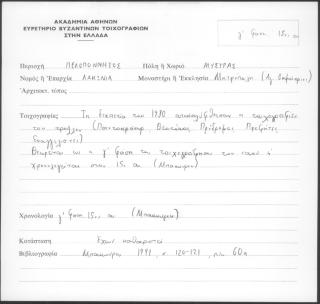 ΑΚΑΔΗΜΙΑ ΑΘΗΝΩΝ
ΕΥΡΕΤΗΡΙΟ ΒΥΖΑΝΤΙΝΩΝ ΤΟΙΧΟΓΡΑΦΙΩΝ
ΣΤΗΝ ΕΛΛΑΔΑ
γ' φάση 15ου αι
Περιοχή ΠΕΛΟΠΟΝΝΗΣΟΣ Πόλη ἤ Χωριό ΜΥΣΤΡΑΣ
Νομός ἤ Ἐπαρχία ΛΑΚΩΝΙΑ Μοναστήρι ἤ Ἐκκλησία Μητρόπολη (Αγ. Δημήτριος)
Ἀρχιτεκτ. τύπος
Τοιχογραφίες: Τη δεκαετία του 1980 αποκαλύφθηκαν οι τοιχογραφίες
του τρούλλου (Παντοκράτορ, Θεοτόκος, Πρόδρομος, Προφήτες
Ευαγγελιστές)
Θεωρείται ως η γ' φάση της τοιχογράφησης του ναού &
χρονολογείται στον 15. αι (Μπακούρου)
Χρονολογία γ' φάση 15ου αι (Μπακούρου)
Κατάσταση Έχουν καθαριστεί
Βιβλιογραφία Μπακούρου, 1991, σ. 120-121, πιν 60α